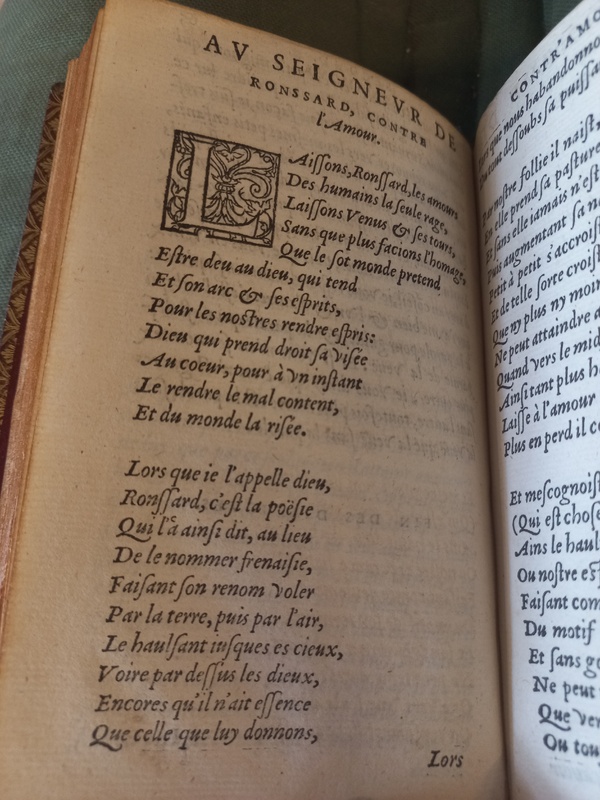 AV SEIGNEVR DE
RONSSARD, CONTRE
l'Amour.
LAißons, Ronſſard, les amours
Des humains la ſeule rage,
Laiſſons Venus & ſes tours,
Sans que plus facions l'homage,
Que le ſot monde pretend
Eſtre deu au dieu, qui tend
Et ſon arc & ſes eſprits,
Pour les noſtres rendre eſpris:
Dieu qui prend droit ſa viſée
Au coeur, pour à vn inſtant
Le rendre le mal content,
Et du monde la riſée.
Lors que ie l'appelle dieu,
Ronſſard, c'eſt la poëſie
Qui l'a ainſi dit, au lieu
De le nommer frenaiſie,
Faiſant ſon renom voler
Par la terre, puis par l'air,
Le haulſant iuſques es cieux,
Voire par deſſus les dieux,
Encores qu'il n'ait eſſence
Que celle que luy donnons,
Lors
CONTR'AMO
que nous habandonno
deſſoubs ſa puiſſa
noſtre follie il naiſt
elle prend ſa paſture
Et ſans elle iamais n'eſt
Puis augmentant ſa no
Petit à petit s'accroiſ
Et de telle ſorte croiſt
Que ny plus ny moin
Ne peut attaindre a
Quand vers le mid
Ainſi tant plus h
Laiſſe à l'amour
Plus en perd il c
Et meſcognoiſ
(Qui eſt choſe
Ains le haul
Ou noſtre eſ
Faiſant com
Du motif
Et ſans g
Ne peut
Que ver
Ou tou